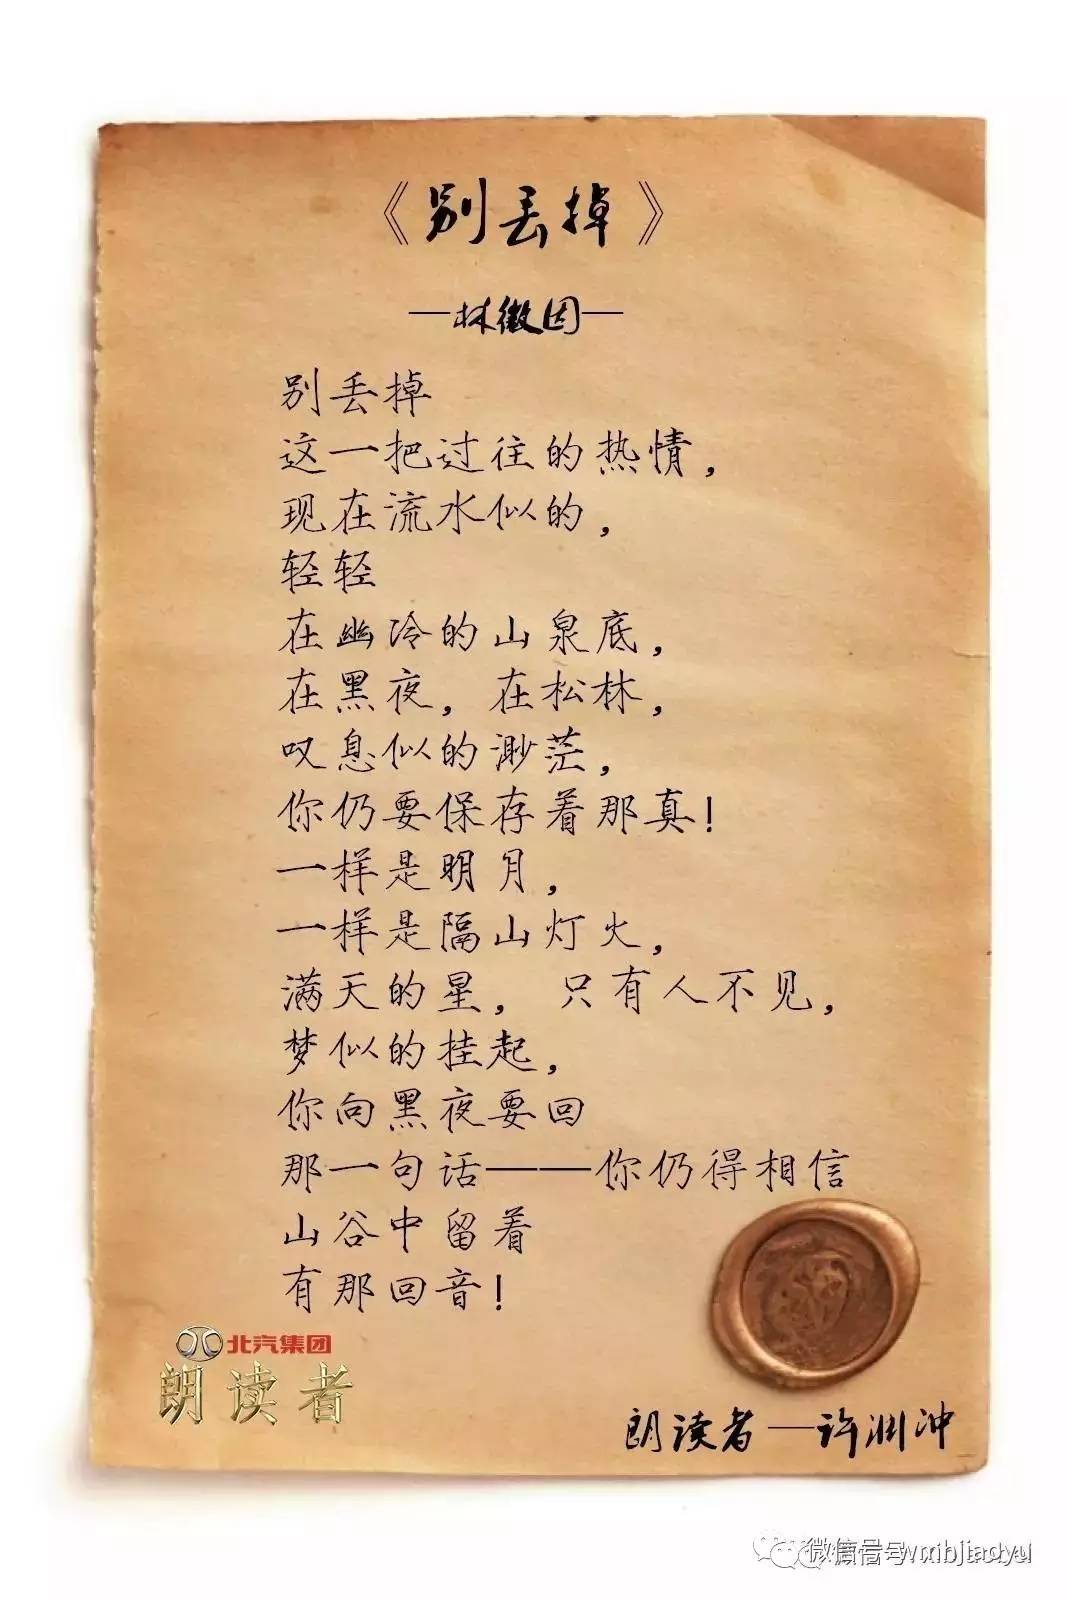 《别丢掉》
—林徽因—
别丢掉
这一把过往的热情，
现在流水似的，
轻轻
在幽冷的山泉底，
在黑夜，在松林，
叹息似的渺茫，
你仍要保存着那真！
一样是明月，
一样是隔山灯火，
满天的星，只有人不见，
梦似的挂起，
你向黑夜要回
那一句话——你仍得相信
山谷中留着
有那回音！
北汽集团
朗读者
朗读者—许渊冲
微信号